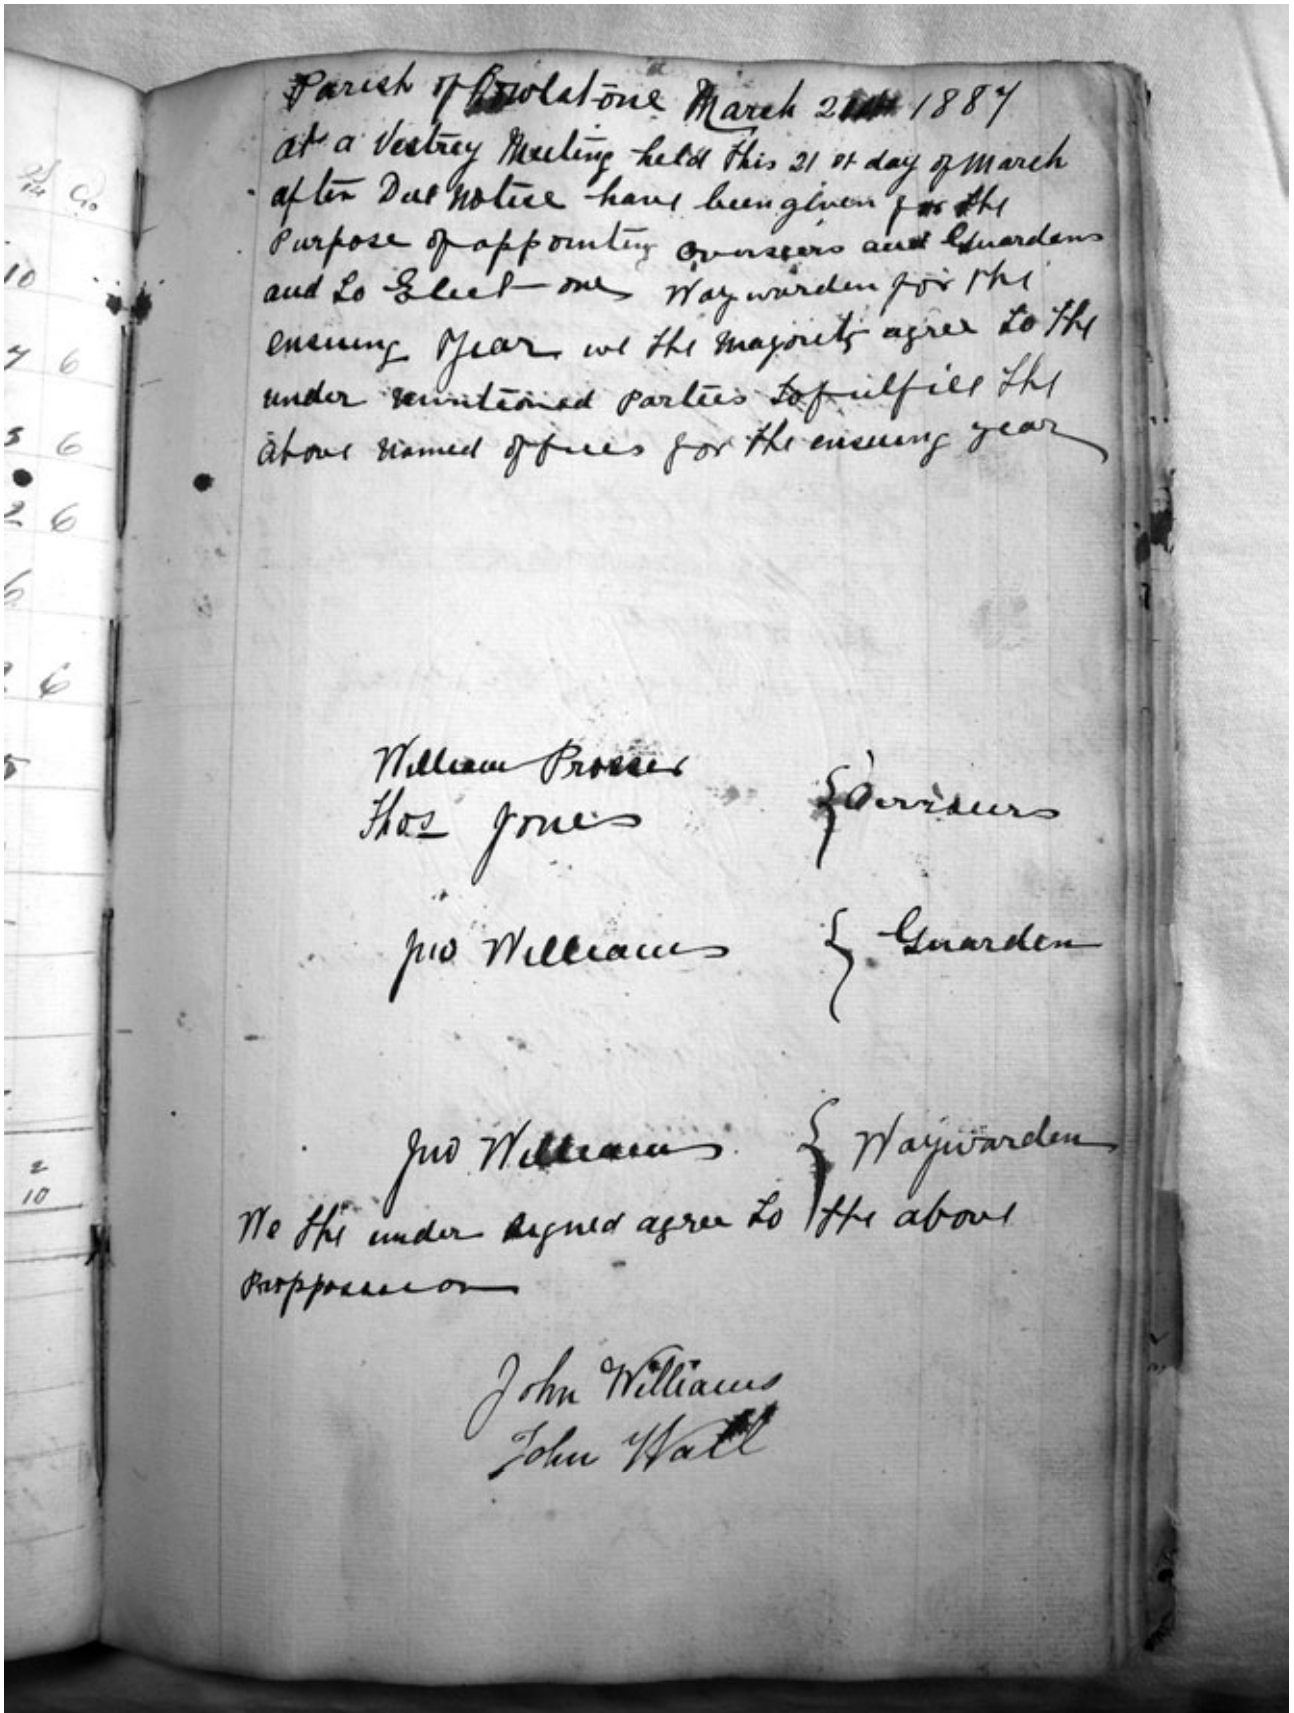 Parish of Rowlstone March 21st 1887
at a Vestrey Meeting held this 21 st day of March
after Due Notise have been given for the
Purpose of appointing overseers and Guardens
and to Elect one Waywarden for the
ensuing Year we the Majority agree to the
under mentioned Parties to fulfill the
above named offices for the ensuing year
10
7 6
3 6
2 6
6
6
5
2
10
William Prosser
Thos Jones { Overseers
Jno Williams { Guarden
Jno Williams { Waywarden
We the under signed agree to the above
John Williams
John Wall